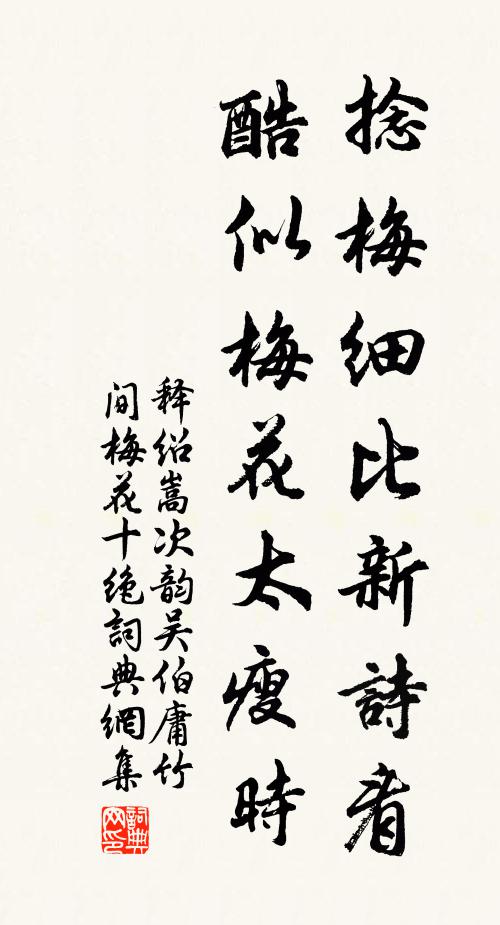 捻梅細比新詩看
酷似梅花太瘦時
释绍嵩次韵吴伯庸竹
间梅花十绝詞典網集
詞典
网印